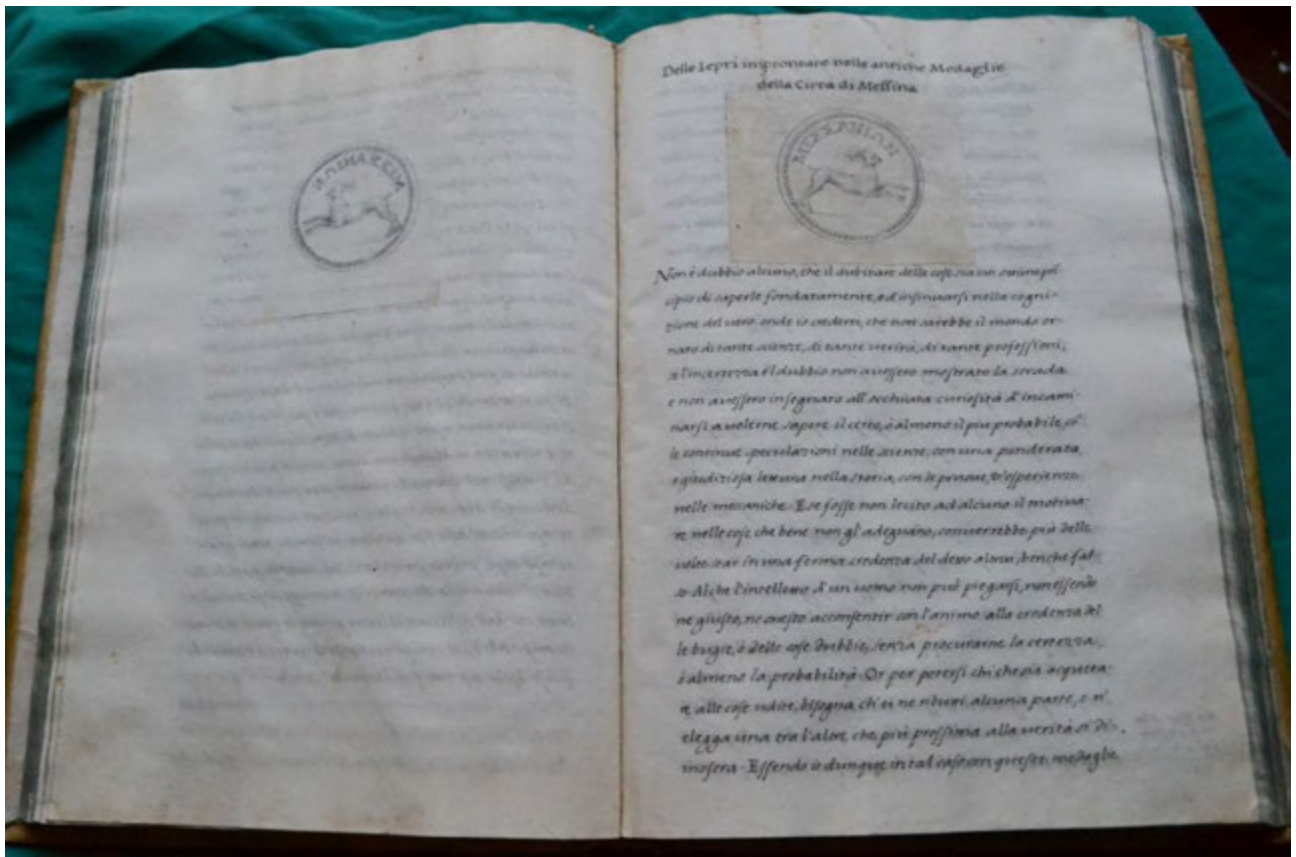 Delle Lepri improntate nelle antiche Medaglie
della Città di Messina
Non è dubbio alcuno, che il dubitare delle cose sia un
cipio di saperle fondatamente, ed insinuarsi nella cogni-
zione del vero. onde io crederei, che non sarebbe il mondo or-
nato di tante scienze, di tante verità, di tante professioni,
se l'incertezza e'l dubbio non avessero mostrato la strada
e non avessero insegnato all'occhiuta curiosità d'incami-
narsi a volerne sapere il certo, ò almeno il piu probabile, cō
le continue specolazioni nelle scienze, con una ponderata,
e giudiziosa lettura nella storia, con le pruove, ed'esperienze
nelle mecaniche. E se fosse non lecito ad alcuno il motiva-
re nelle cose che bene non gl'adeguano, converrebbe più delle
volte star in una ferma credenza del detto altrui, benche fal-
so. Al che l'intelletto d'un uomo non può piegarsi, non essendo
ne giusto, ne onesto acconsentir con l'animo alla credenza del-
le bugie, ò delle cose dubbie, senza procurarne la certezza,
ò almeno la probabilità. Or per potersi chi che sia acquieta-
re alle cose udite, bisogna ch'ei ne ributti alcuna parte, e n'
elegga una tra l'altre, che più prossima alla verità si di-
mostra. Essendo io dunque in tal caso con queste medaglie